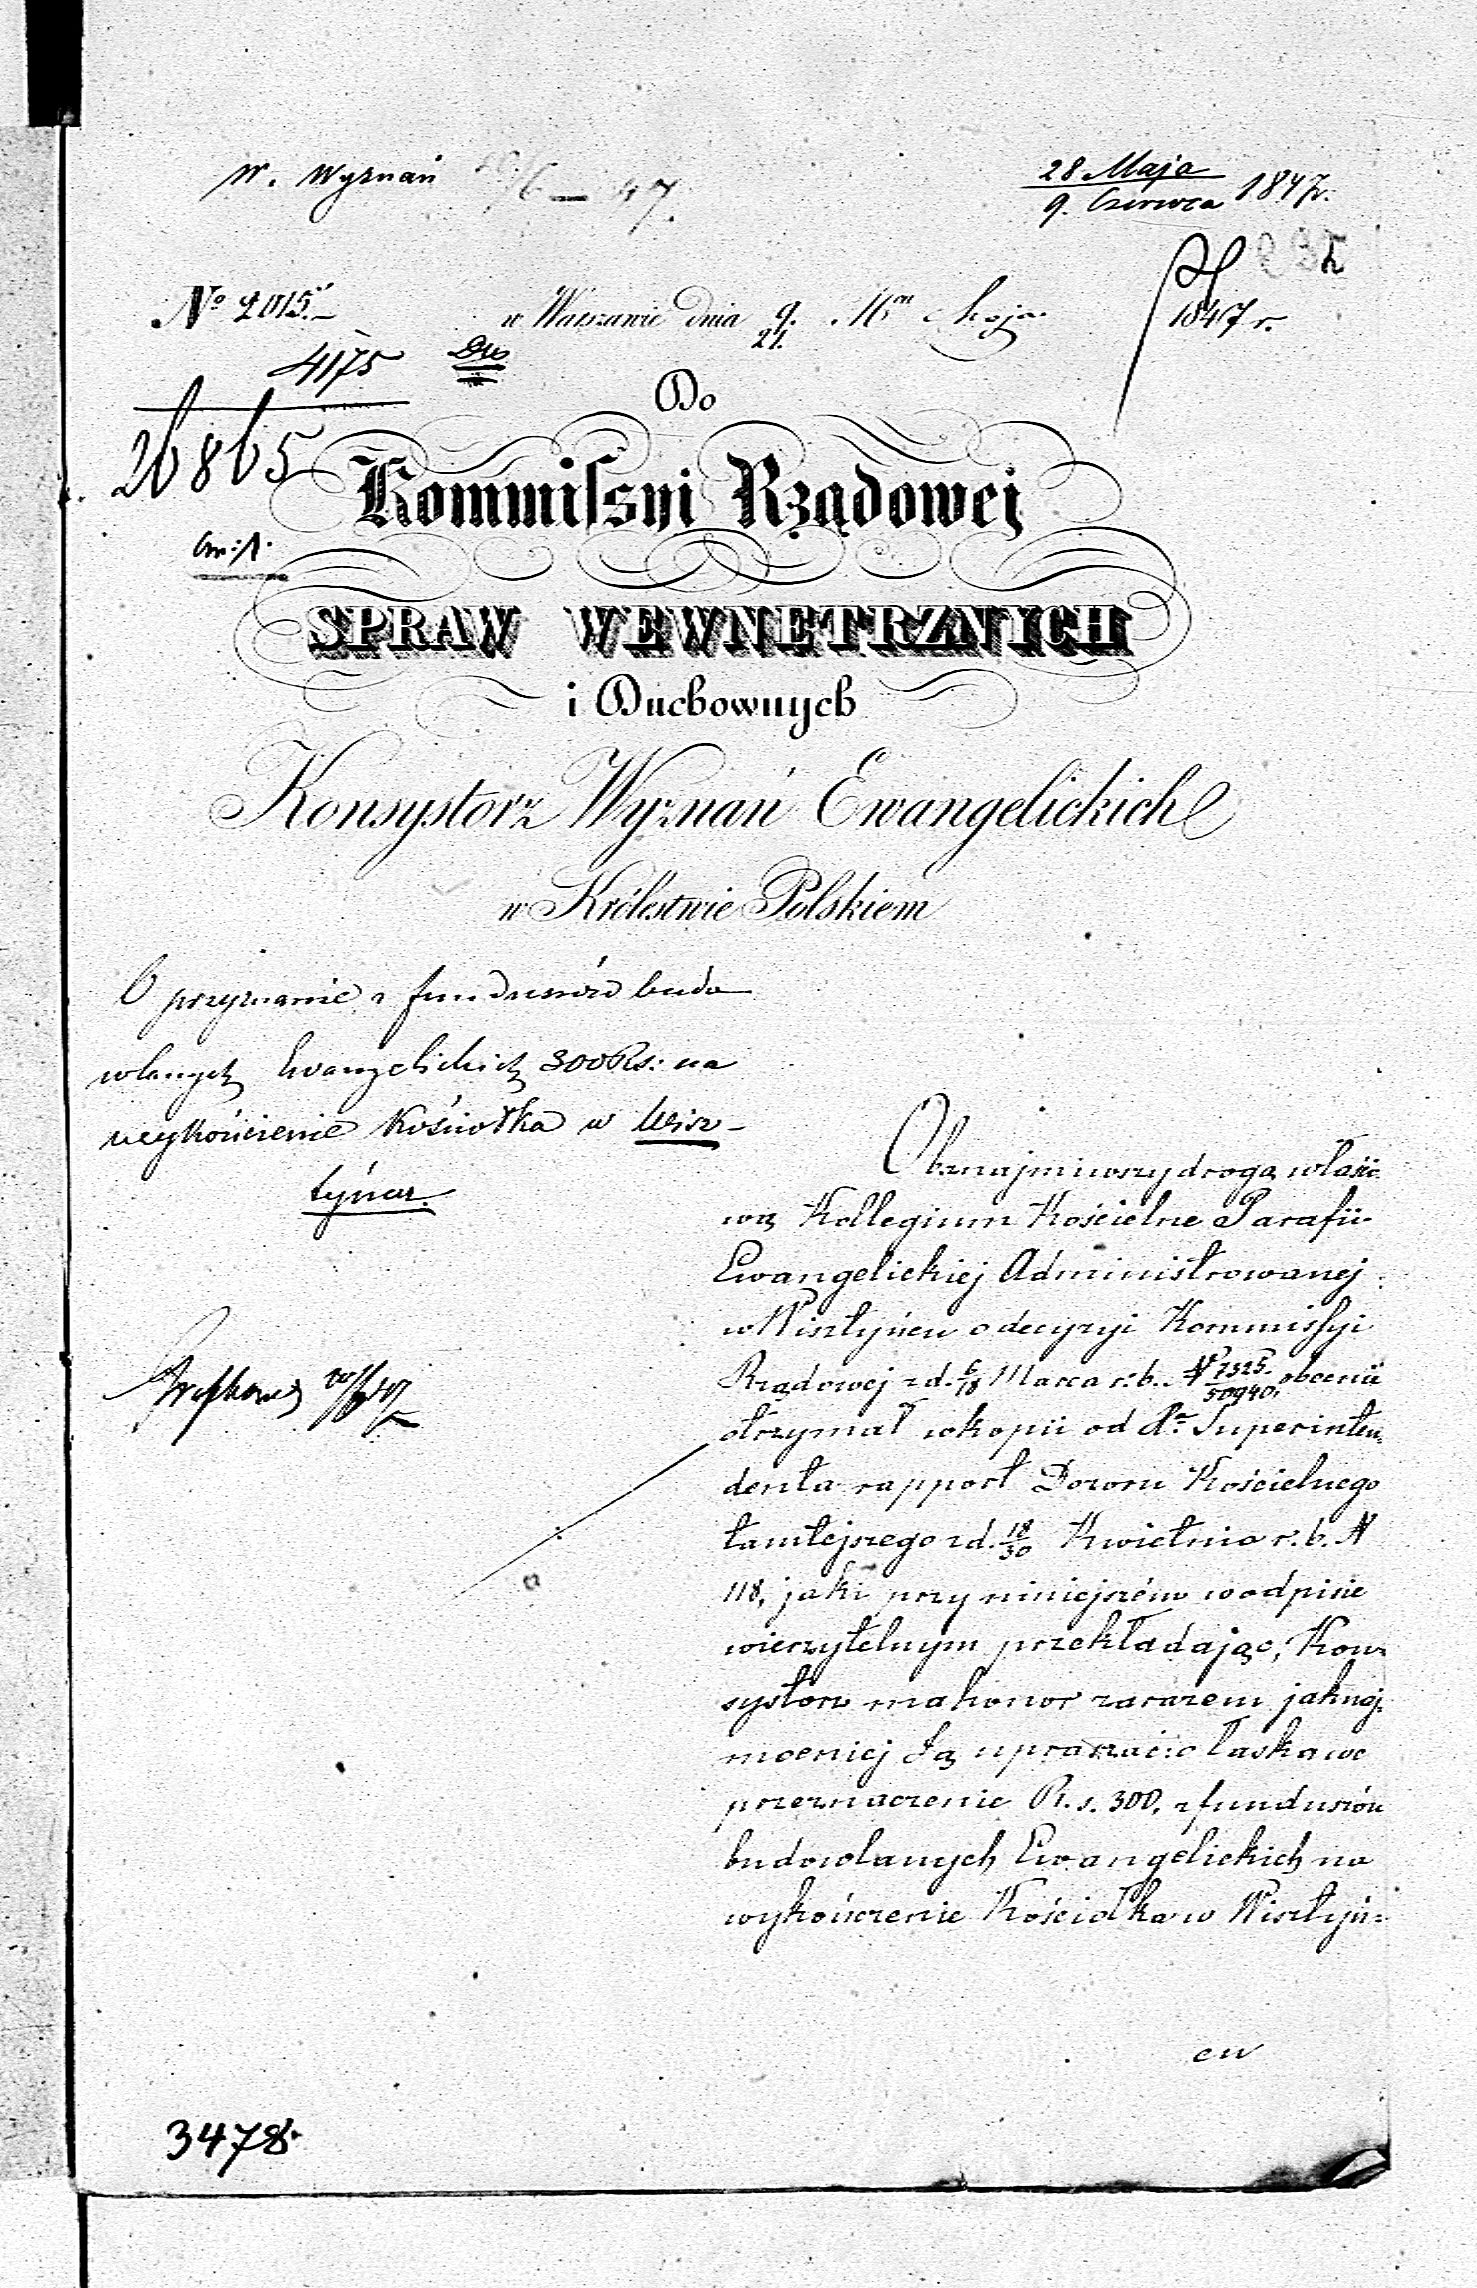 W. Wyznań /6 — 47.
28 Maja
9. Czerwca 1847 r.
No 2015.
w Warszawie dnia 9. Mca Maja
21.
1847 r.
4175
Do
26865
Kommissyi Rządowej
SPRAW WEWNETRZNYCH
i Duchownych
Konsystorz Wyznań Ewangelickich
w Królestwie Polskiem
O przyznanie z funduszów budo
wlanych Ewangelickich 300 Rs: na
wykończenie Kościołka w Wisz-
tyńcu.
Obznajmiwszy drogą właści
wą Kollegium Kościelne Parafii
Ewangelickiej Administrowanej
w Wisztyńcu o decyzyi Kommissyi
Rządowej z d. 6/18 Marca r. b. N 7325/50940. obecnie
otrzymał w kopii od Pa. Superinten-
denta rapport Dozoru Kościelnego
tamtejszego z d. 18/30 Kwietnia r. b. N
118, jaki przy niniejszém w odpisie
wierzytelnym przekładając, Kon-
systorz ma honor zarazem jaknaj-
mocniej Ją upraszać o łaskawe
przeznaczenie R. s. 300. z funduszów
budowlanych Ewangelickich na
wykończenie Kościołka w Wisztyń-
cu
3478.